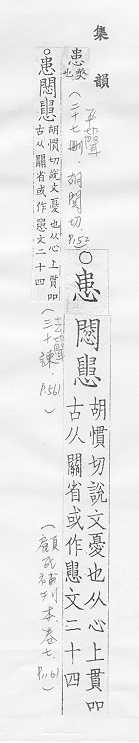 集韻
患 獘也
(二十七刪．胡關切．P.152
平聲
○患悶𢤶 胡慣切說文憂也从心上貫吅
古从關省或作𢤶文二十四
(去聲
三十諫．P.561)
○患悶𢤶 胡慣切說文憂也从心上貫吅
古从關省或作𢤶文二十四
(顧氏補刊本．卷七．P.1161)